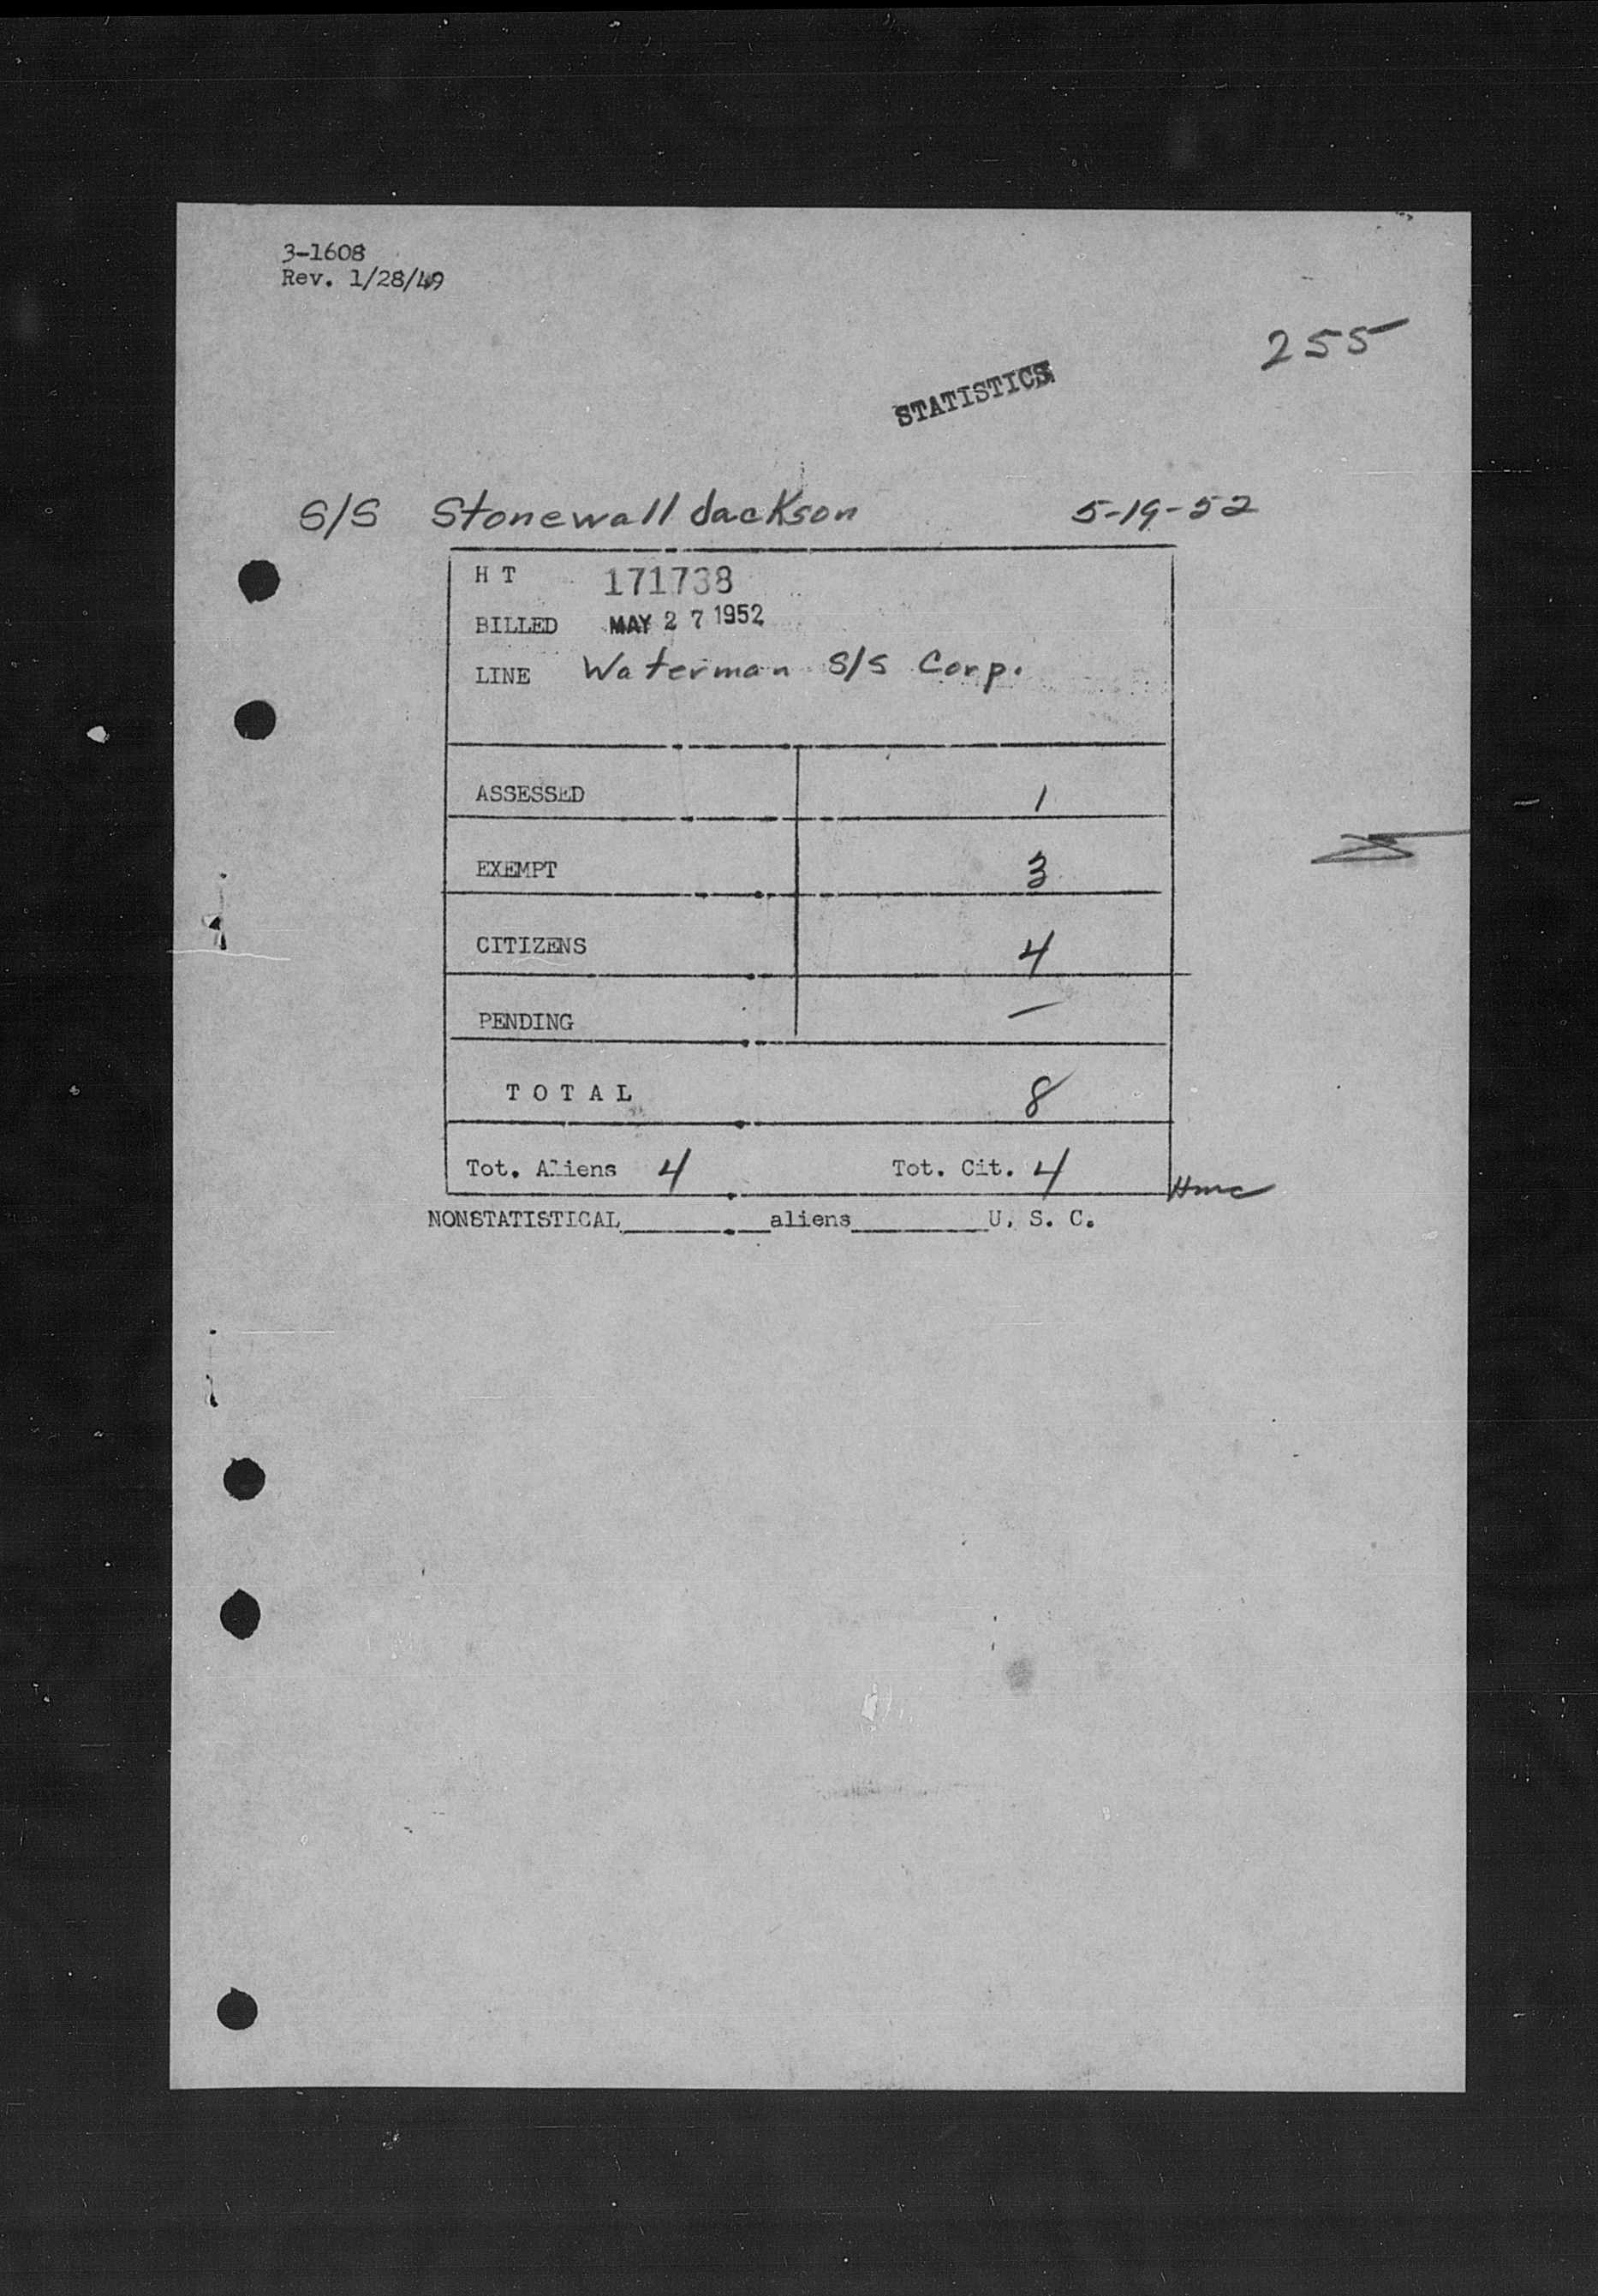 3-1608
Rev. 1/28/49
255
STATISTICS
S/S Stonewall Jackson 5-19-52
H T 171738
BILLED MAY 27 1952
LINE Waterman S/S Corp.
ASSESSED 1
EXEMPT 3
CITIZENS 4
PENDING —
T O T A L 8
Tot. Aliens 4 Tot. Cit. 4
NONSTATISTICAL________aliens________U. S. C.